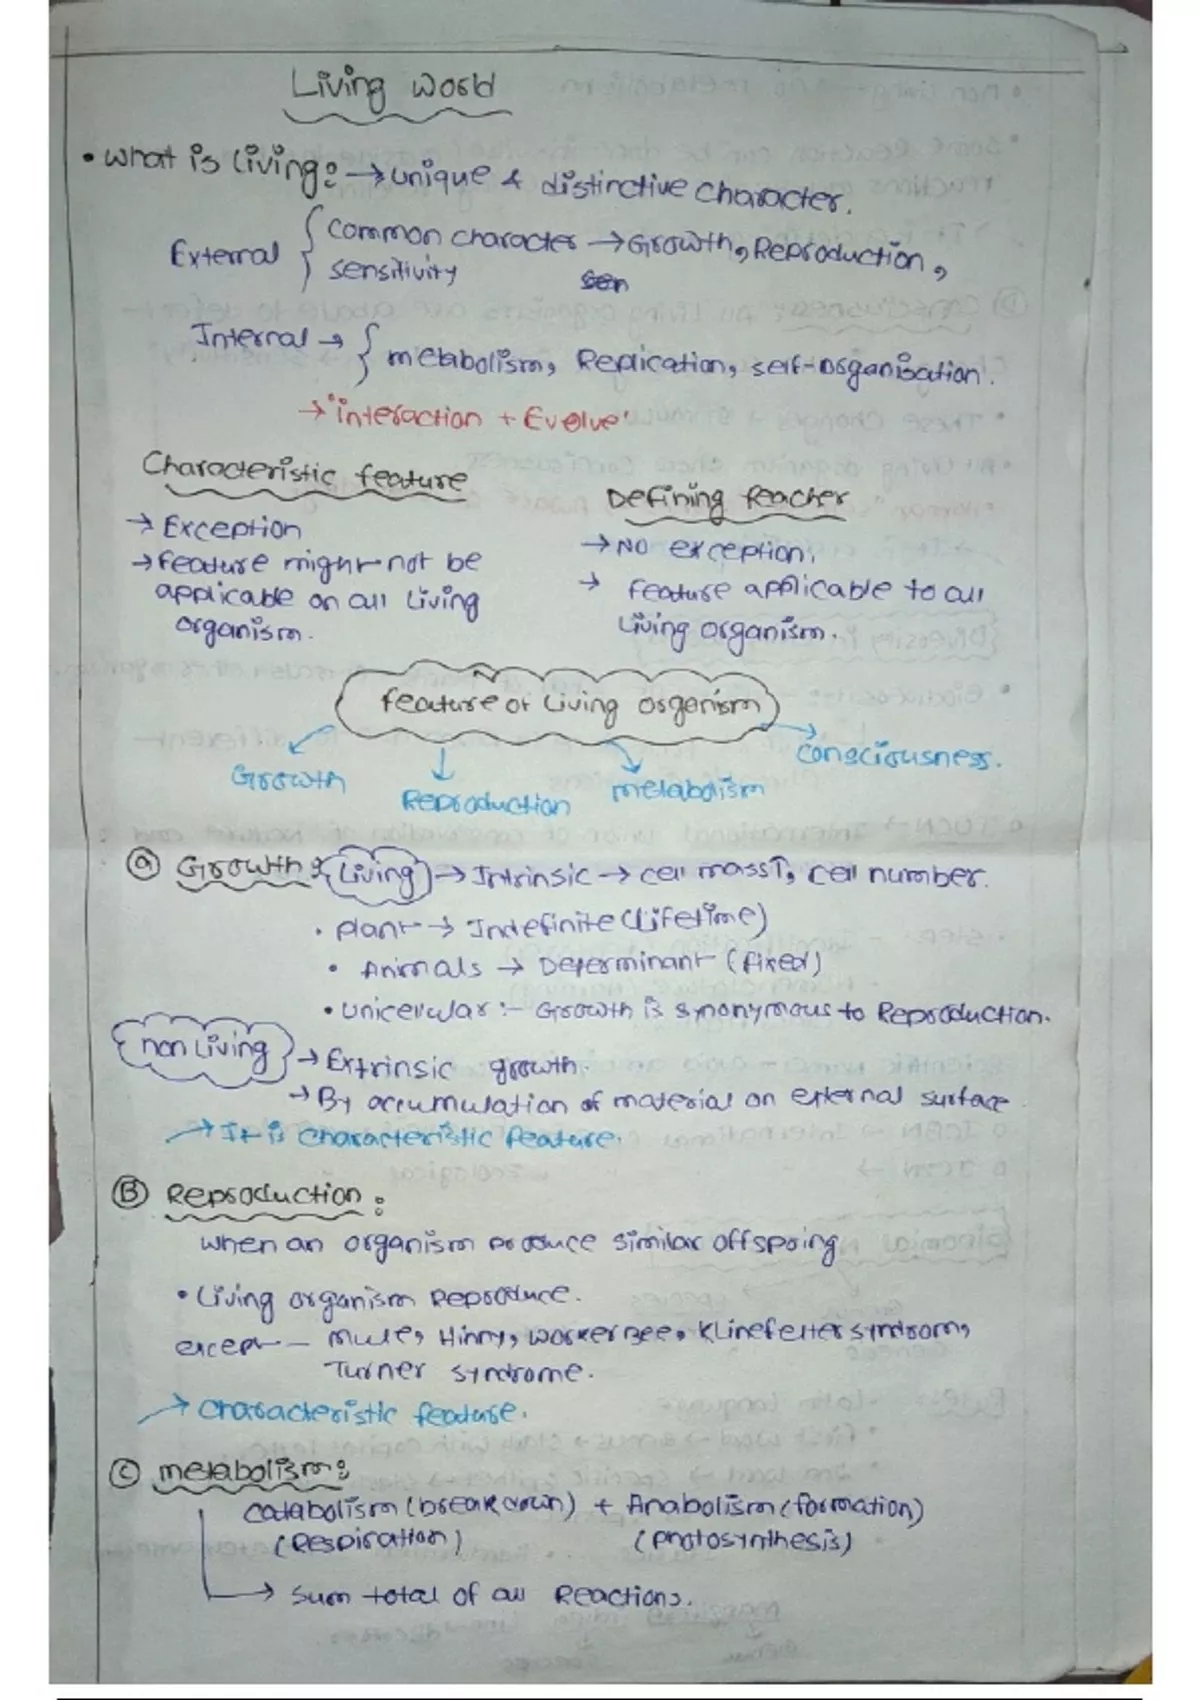 Living world
• What is living: → unique & distinctive character.
External { Common character → Growth, Reproduction,
sensitivity
Internal → { metabolism, Replication, self-organisation.
→ "interaction + Evolve"
Characteristic feature
→ Exception
→ feature might not be
applicable on all living
organism.
Defining feacher
→ No exception.
→ feature applicable to all
living organism.
feature of living organism
Growth
Reproduction
metabolism
Consciousness.
(a) Growth: { Living } → Intrinsic → cell mass↑, cell number.
• Plant → Indefinite (Lifetime)
• Animals → Determinant (fixed)
• unicellular :- Growth is synonymous to Reproduction.
{ non Living } → Extrinsic growth.
→ By accumulation of material on external surface
→ It is characteristic feature.
(B) Reproduction:
When an organism produce similar offspring
• Living organism Reproduce.
except – Mule, Hinny, Worker Bee, Klinefelter syndrom,
Turner syndrome.
→ Characteristic feature.
(C) metabolism:
Catabolism (break down) + Anabolism (formation)
(Respiration) (photosynthesis)
→ sum total of all Reactions.